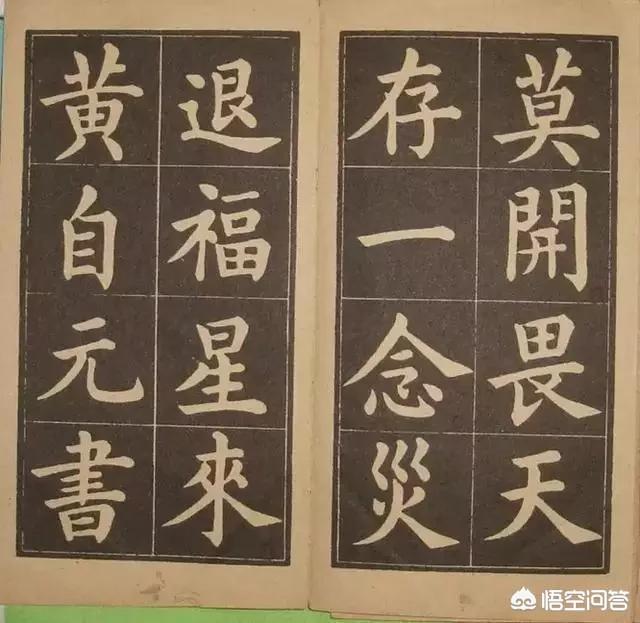 莫開畏天
存一念災
退福星來
黄自元書
悟空问答